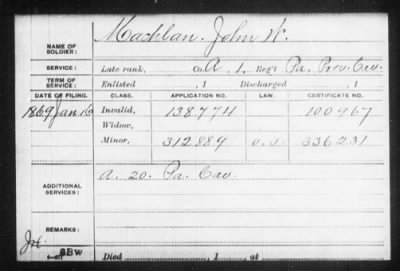 Machlan. John W.
NAME OF SOLDIER:
SERVICE: Late rank, Co. A, 1, Reg't Pa. Prov. Cav.
TERM OF SERVICE: Enlisted , 1 Discharged , 1
DATE OF FILING. CLASS. APPLICATION NO. LAW. CERTIFICATE NO.
1869 Jan. 16 Invalid, 138774 100967
Widow,
Minor, 312889 336231
A. 20. Pa. Cav.
ADDITIONAL SERVICES:
REMARKS:
SBW Died , 1 , at